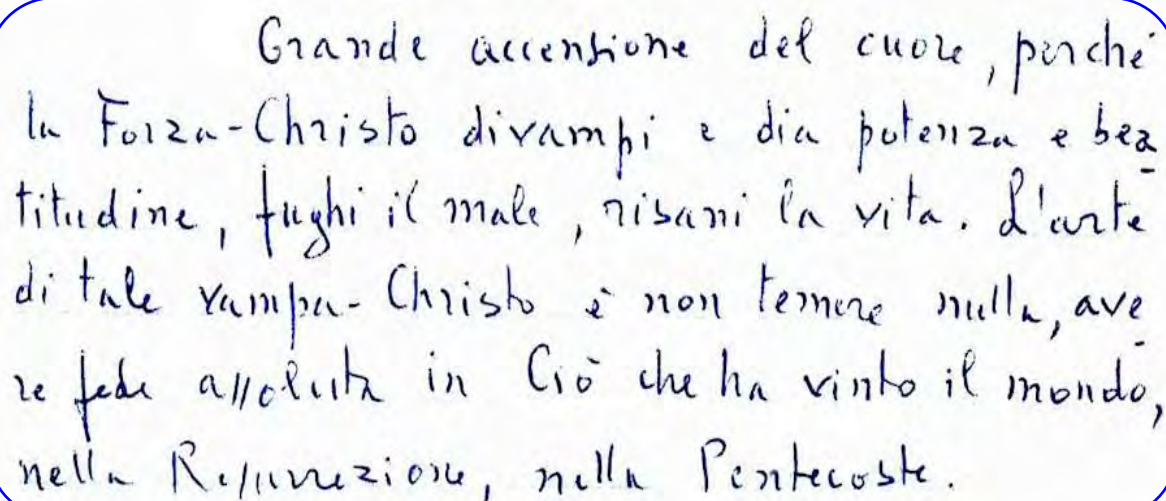 Grande accensione del cuore, perché
la Forza-Christo divampi e dia potenza e bea
titudine, fughi il male, risani la vita. L'arte
di tale vampa-Christo è non temere nulla, ave
re fede assoluta in Ciò che ha vinto il mondo,
nella Resurrezione, nella Pentecoste.